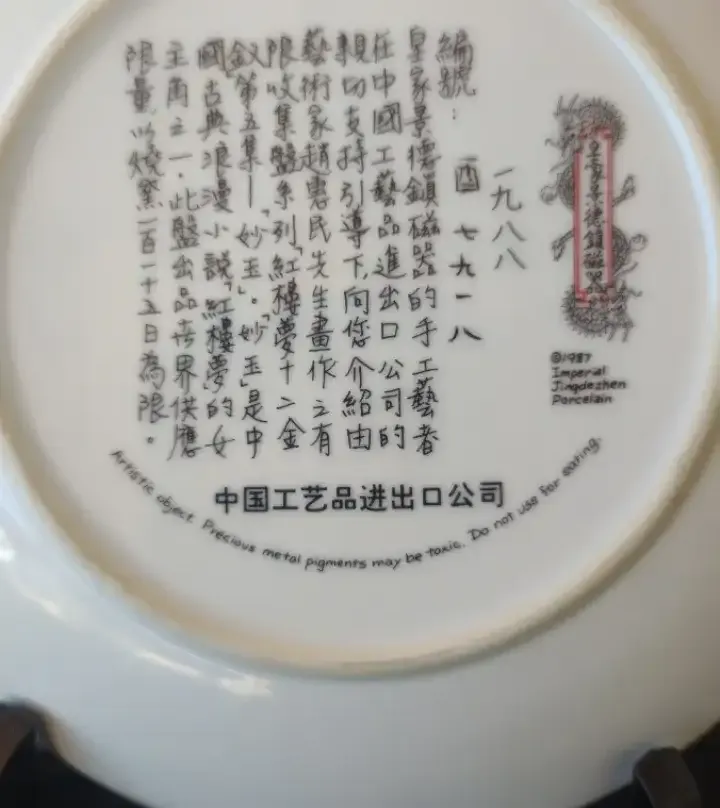 皇家景德鎮磁器
©1987
Imperial
Jingdezhen
Porcelain
一九八八
編號：酉七九一八
皇家景德鎮磁器的手工藝者
在中國工藝品進出口公司的
親切支持引導下,向您介紹由
藝術家趙惠民先生畫作之有
限收集盤系列「紅樓夢十二金
釵第五集—「妙玉」。「妙玉」是中
國古典浪漫小說「紅樓夢」的女
主角之一,此盤出品世界供應
限量以燒窯一百一十五日為限。
中国工艺品进出口公司
Artistic object. Precious metal pigments may be toxic. Do not use for eating.